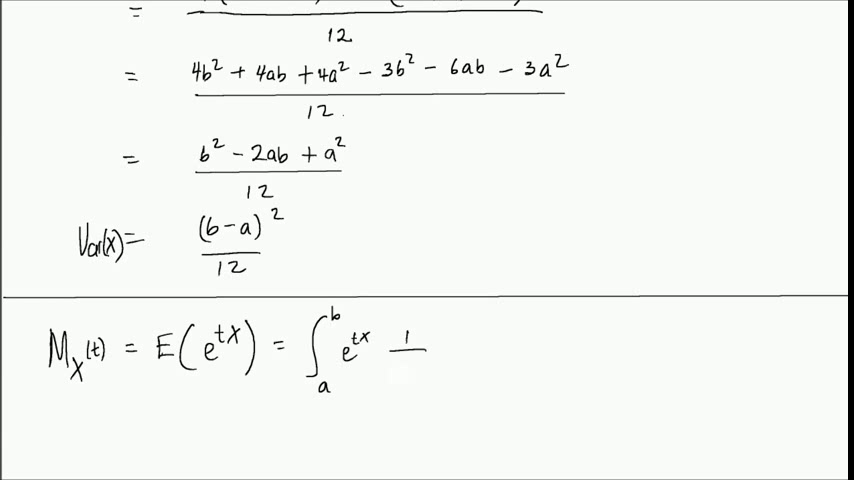 = 12
= 4b² + 4ab + 4a² - 3b² - 6ab - 3a² / 12
= b² - 2ab + a² / 12
Var(X) = (b-a)² / 12
M_X(t) = E(e^{tX}) = ∫_a^b e^{tx} 1/